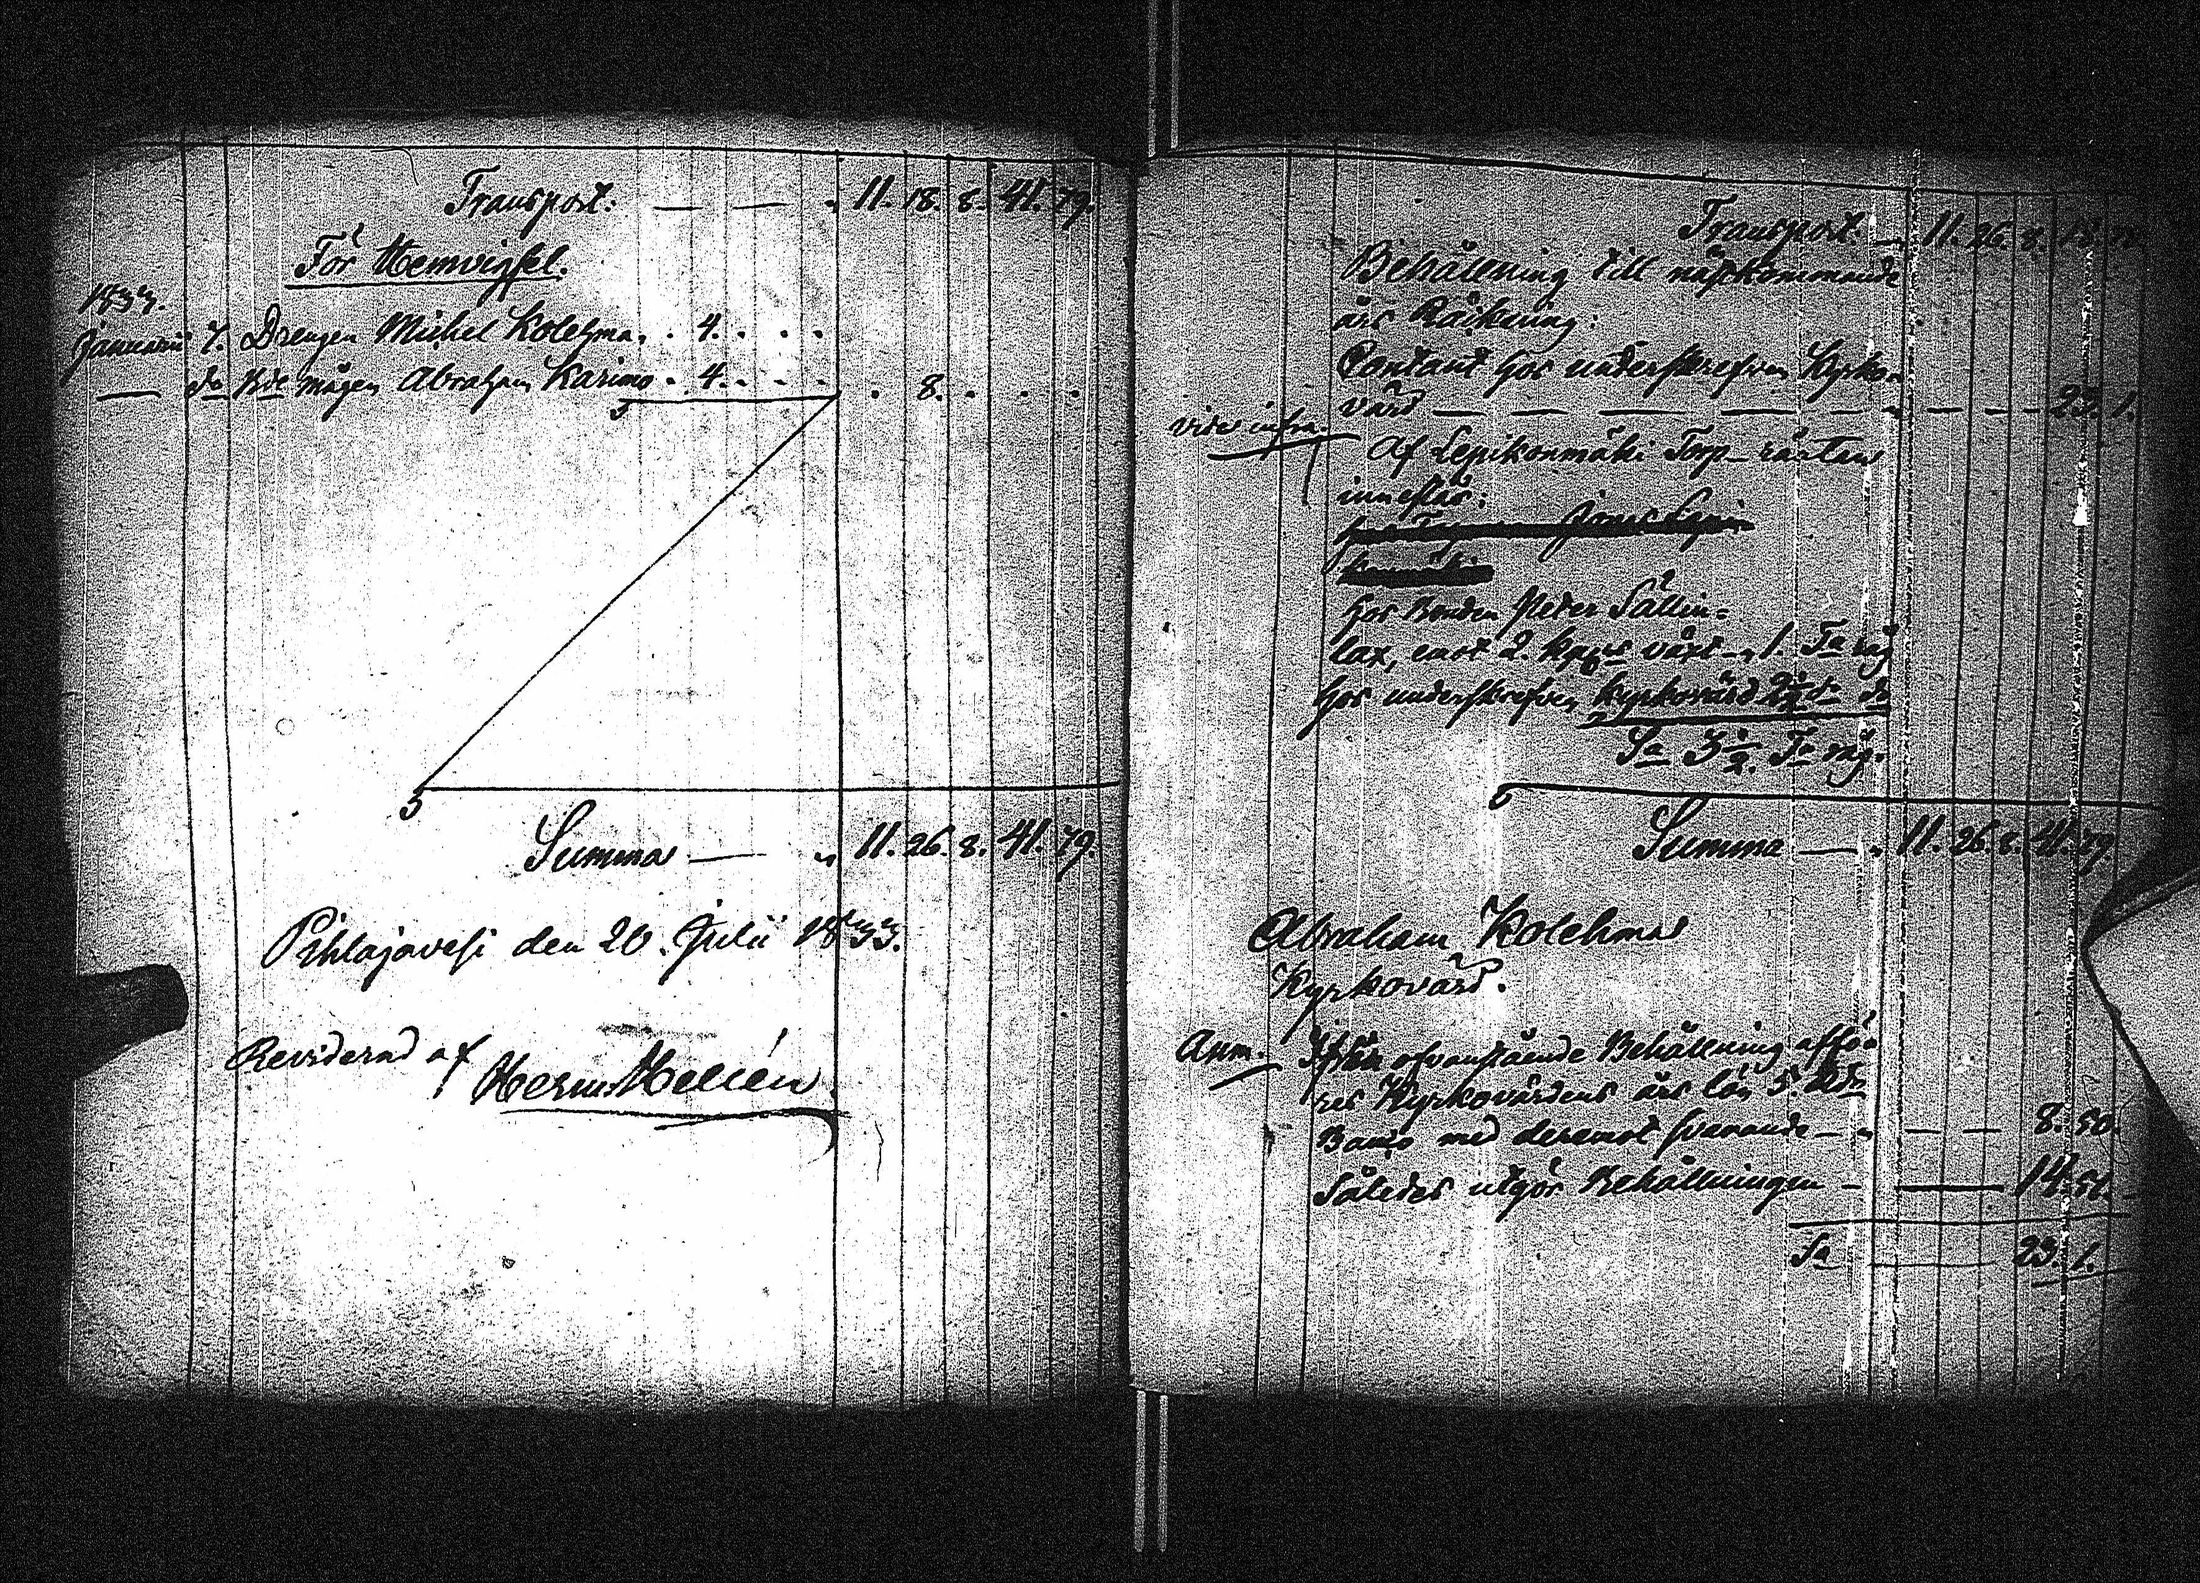 Transport: — — „ 11. 18. 8. 41. 79.
För Hemvigsel.
1833.
Januarii 7. Drengen Michel Kolehma, . 4. . . .
— do Bde mågen Abraham Karimo . 4. . . . . 8. . . .
Summa — „ 11. 26. 8. 41. 79.
Pihlajavesi den 20. Julii 1833.
Reviderad af
Herm. Hellén
Transport: — 11. 26. 8. 18.
Behållning till nästkommande
års Räkning:
Contant hos underskrefven Kyrko-
vård — — — — — — — 23. 1.
vide infra.
Af Lepikonmäki Torp-räntan
innestår:
hos Bonden Peter Sällin-
lax, emot 2. kprs växt „ 1. Ta råg
hos underskrefven Kyrkovärd 2½ do do
Sa 3½ Ta råg.
Summa — „ 11. 26. 8. 41. 79.
Abraham Kolehma
Kyrkovärd.
Anm. Ifrån ofvanstående Behållning afför-
res Kyrkovärdens års lön 5. Rdr
Banco med deremot svarande — „ — — 8. 50.
Således utgör Behållningen — — 14. 51.
Sa — 23. 1.